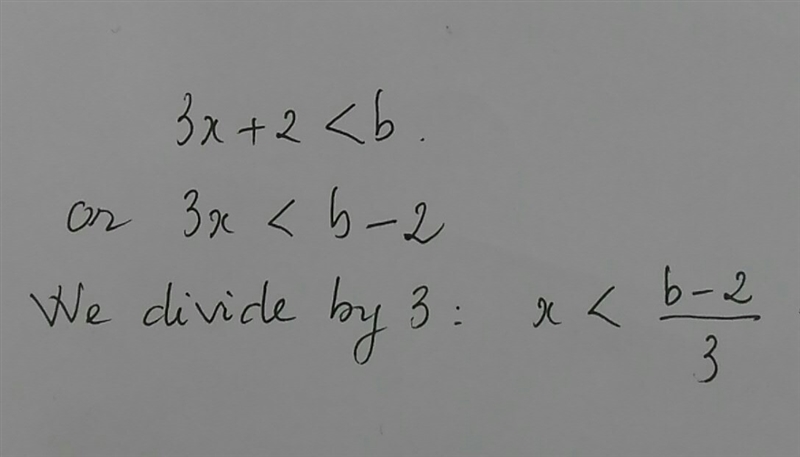 3x + 2 < b.
or 3x < b - 2
We divide by 3: x < \frac{b-2}{3}.